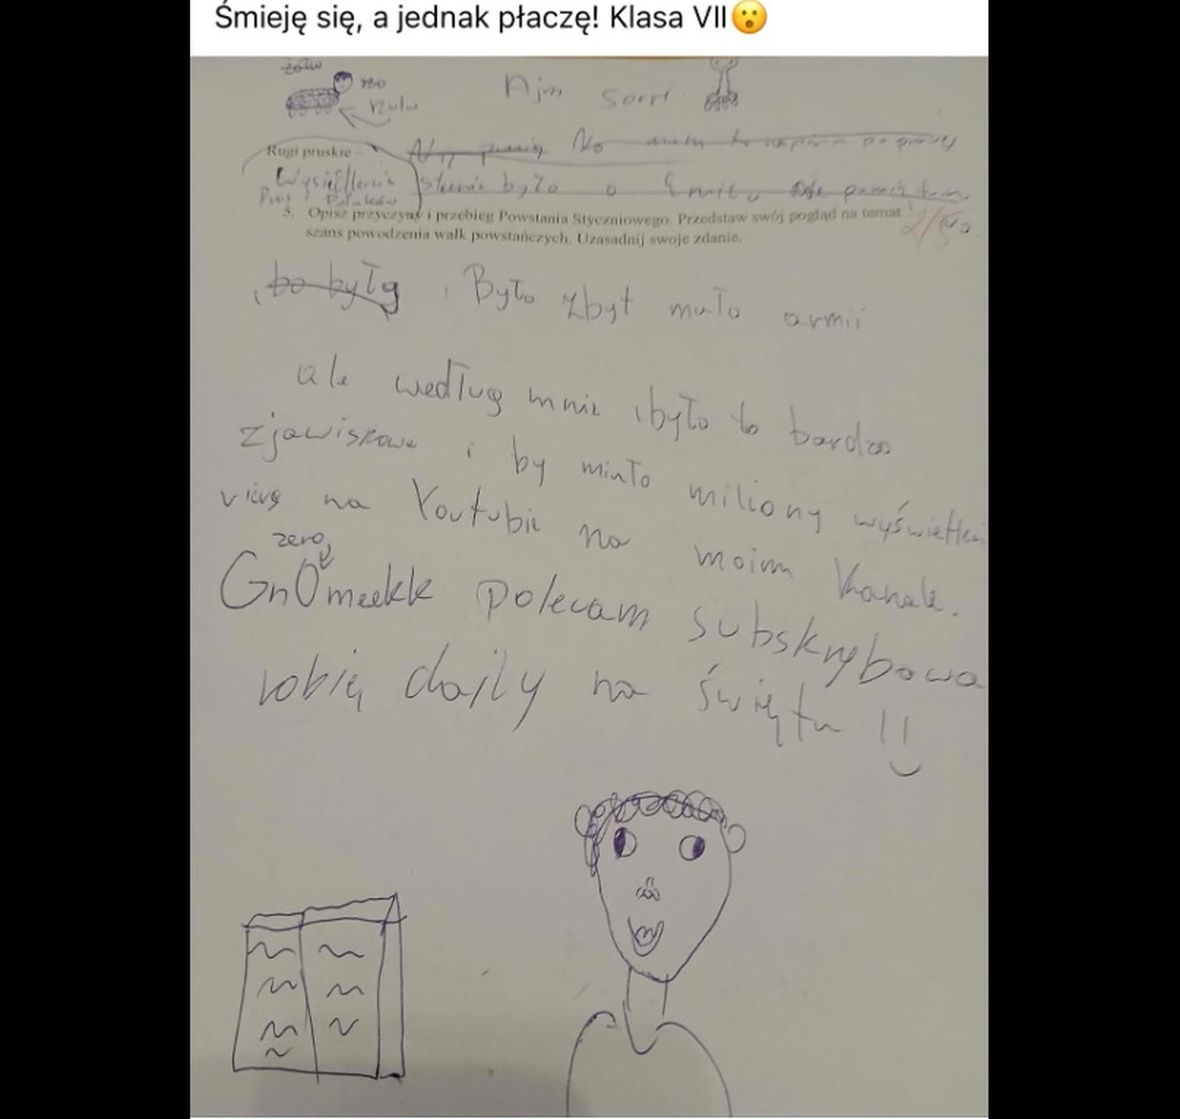 Śmieję się, a jednak płaczę! Klasa VII😮
żółw
Ajm Sorri
Rugi pruskie -
No
Wysiedlenia
było o
Prus i Polaków
5. Opisz przyczyny i przebieg Powstania Styczniowego. Przedstaw swój pogląd na temat
szans powodzenia walk powstańczych. Uzasadnij swoje zdanie.
2/5
bo były Było zbyt mało armii
ale według mnie było to bardzo
zjawiskowe i by miało miliony wyświetleń
na Youtubie na moim kanale.
zero
Gn0meekk polecam subskrybowa
robię dajly na święta !!